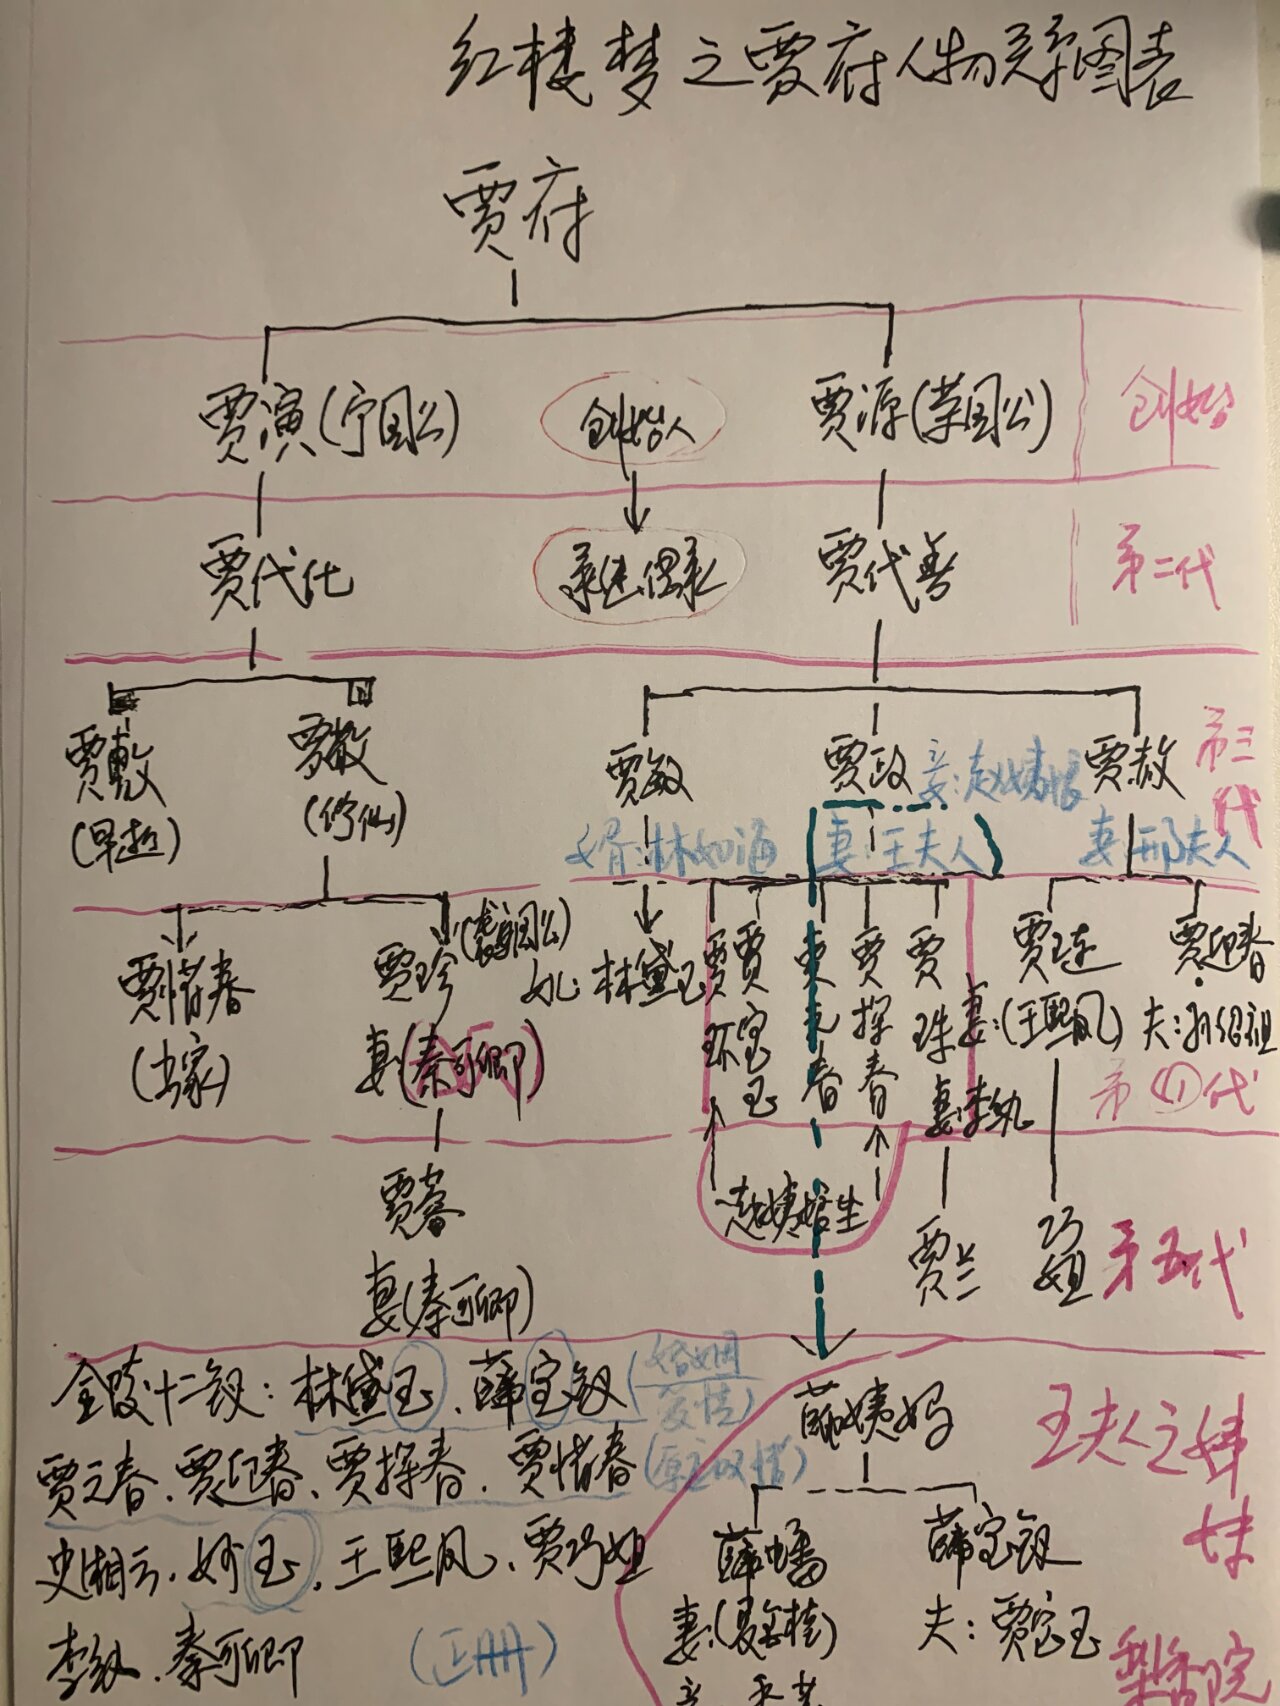 红楼梦之贾府人物关系图表
贾府
贾演(宁国公) 创始人 贾源(荣国公) 创始
贾代化 承建偶承 贾代善 第二代
贾敷 贾敬 贾敏 贾政 妾:赵姨娘 贾赦 第三代
(早逝) (修仙) 婿:林如海 妻:王夫人 妻:邢夫人
贾惜春 贾珍 女儿:林黛玉 贾环 贾宝玉 贾元春 贾探春 贾珠 贾琏 贾迎春
(出家) 妻:(秦可卿) 妻:李纨 妻:(王熙凤) 夫:孙绍祖
第四代
贾蓉 赵姨娘生 贾兰 巧姐 第五代
妻(秦可卿)
金陵十二钗:林黛玉、薛宝钗(婚姻
爱情) 薛姨妈 王夫人之姊妹
贾元春、贾迎春、贾探春、贾惜春
史湘云、妙玉、王熙凤、贾巧姐 薛蟠 薛宝钗
李纨、秦可卿 (正册) 妻:(夏金桂) 夫:贾宝玉 梨香院